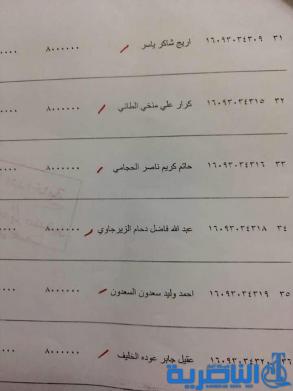 ٣١ ١٦٠٩٣٠٣٤٣٠٩ اريج شاكر ياسر ٨٠٠٠٠٠٠
٣٢ ١٦٠٩٣٠٣٤٣١٥ كرار علي ملخي الطائي ٨٠٠٠٠٠٠
٣٣ ١٦٠٩٣٠٣٤٣١٦ حاتم كريم ناصر الحجامي ٨٠٠٠٠٠٠
٣٤ ١٦٠٩٣٠٣٤٣١٨ عبد الله فاضل دحام الزيرجاوي ٨٠٠٠٠٠٠
٣٥ ١٦٠٩٣٠٣٤٣١٩ احمد وليد سعدون السعدون ٨٠٠٠٠٠٠
٣٦ عقيل جابر عوده الخليف ٨٠٠٠٠٠٠
الناصرية